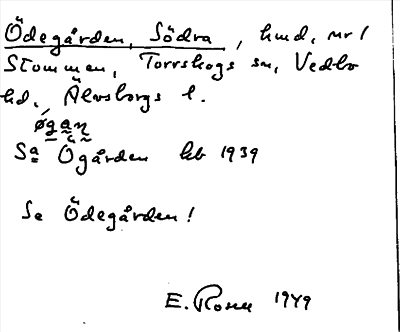 Ödegården, Södra, hmd, nr 1
Stommen, Torrskogs sn, Vedbo
hd, Älvsborgs l.
øgan
Sa Ögården kb 1939
Se Ödegården!
E. Rosell 1949